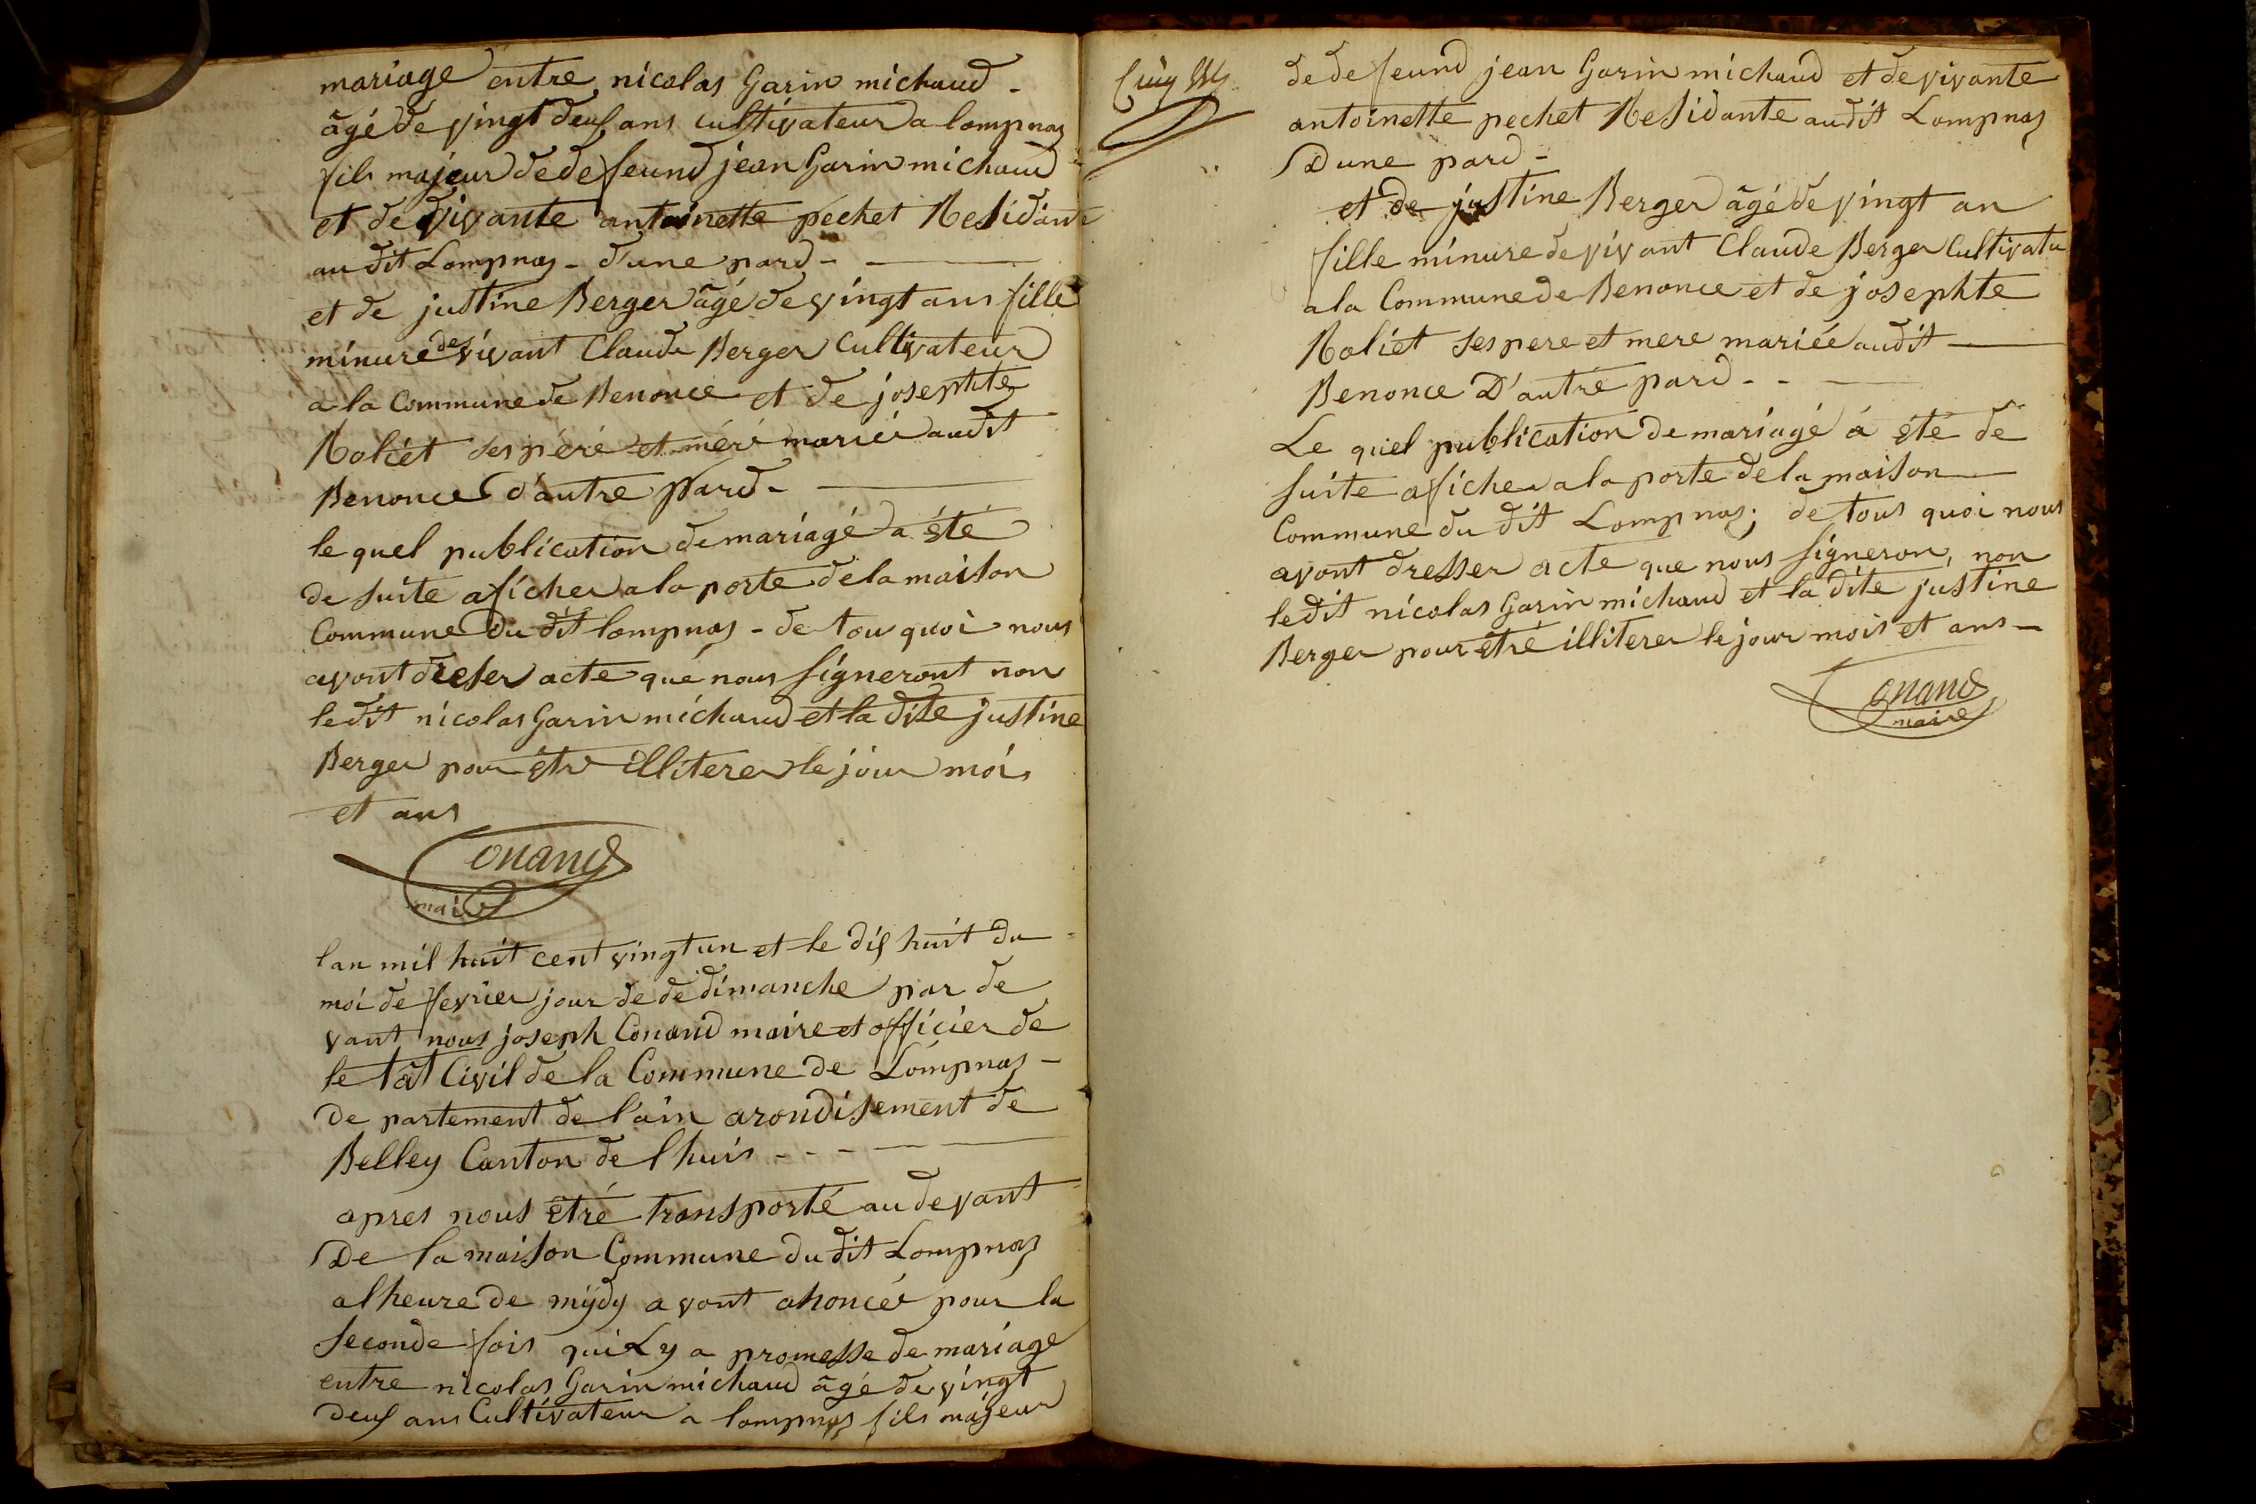 mariage entre nicolas Garin michaud -
âgé de vingt deux ans cultivateur a lompnas
fils majeur de defeund jean Garin michaud
et de vivante antoinette pechet Residante
au dit Lompnas - d'une pard - -
et de justine Berger âgé de vingt ans fille
minure de vivant Claude Berger Cultivateur
a la Commune de Benonce et de josephte
Roliét ses péré et méré mariéé audit
Benonce d'autre pard -
le quel publication de mariagé a été
de suite aficher a la porte de la maison
Commune du dit lompnas - de tou quoi nous
avont dreser acte qué nous signeront non
ledit nicolas Garin michaud et la dite justine
Berger pour étre illiterer le jour moi
et ans
Conand
maire
lan mil huit cent vingt un et le dix huit du
moi de fevrier jour de de dimanche par de
vant nous joseph Conand maire et officier de
le tât Civil de la Commune de Lompnas -
de partement de l'ain arondisement de
Belley Canton de lhuis - - -
apres nous étré transporté au devant
De la maison Commune du dit Lompnas
al heure de mydy avont anoncér pour la
seconde fois quil y a promesse de mariage
entre nicolas Garin michaud âgé de vingt
deux ans Cultivateur a lompnas fils majeur
de defeund jean Garin michaud et de vivante
antoinette pechet Residante audit Lompnas
D une pard -
et de justine Berger âgé de vingt an
fille minure de vivant Claude Berger Cultivatu
a la Commune de Benonce et de josephte
Roliet ses pere et mere mariéé audit
Benonce D'autre pard - -
Le quel publication de mariagé á été de
suite aficher a la porte de la maison
Commune du dit Lompnas; de tous quoi nous
avont dresser acte que nous signeron, non
ledit nicolas Garin michaud et la dite justine
Berger pour étré illiterer le jour mois et ans -
Conand
maire